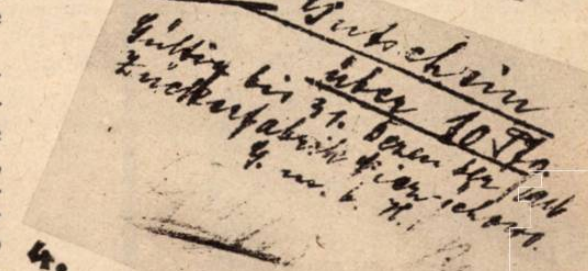 Gutschein
über 10 Pfg.
Gültig bis 31. Dezember
Zuckerfabrik
G. m. b. H.